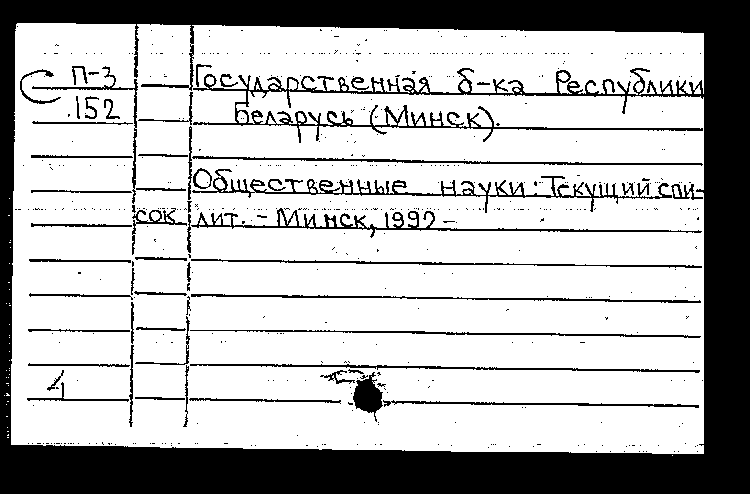 П-3 Государственная б-ка Республики
152 Беларусь (Минск).
Общественные науки: Текущий спи-
сок лит. - Минск, 1992 -
4